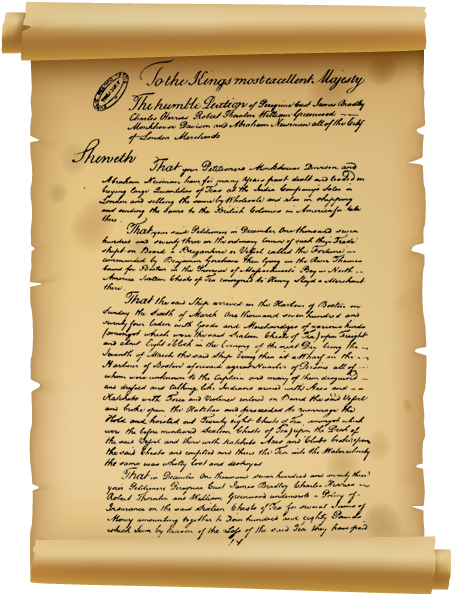 To the Kings most excellent Majesty
The humble Petition of Peregrine Cust James Bradley
Charles Herries Robert Thornton William Greenwood
Monkhouse Davison and Abraham Newman all of the City
of London Merchants
Sheweth
That your Petitioners Monkhouse Davison and
Abraham Newman have for many Years past dealt and traded in
buying large Quantities of Teas at the India Company's Sales in
London and selling the same by Wholesale and also in shipping
and sending the same to the British Colonies in America for Sale
there.
That your said Petitioners in December One thousand seven
hundred and seventy three in the ordinary course of such their Trade
shipt on Board a Brigantine or Vessel called the Fortune
commanded by Benjamin Gorham then lying in the River Thames
bound for Boston in the Province of Massachusets Bay in North
America Sixteen Chests of Tea consigned to Henry Lloyd a Merchant
there.
That the said Ship arrived in the Harbour of Boston on
Sunday the Sixth of March One thousand seven hundred and
seventy four laden with Goods and Merchandizes of various kinds
(amongst which were the said Sixteen Chests of Tea) upon Freight
and about Eight o'Clock in the Evening of the next Day being the
Seventh of March the said Ship being then at a Wharf in the
Harbour of Boston aforesaid a great Number of Persons all of
whom were unknown to the Captain and many of them disguised
and dressed and talking like Indians armed with Axes and
Hatchets with Force and Violence entered on Board the said Vessel
and broke open the Hatches and proceeded to rummage the
Hold and hoisted out Twenty eight Chests of Tea, amongst which
were the before mentioned Sixteen Chests of Tea) upon the Deck of
the said Vessel and there with Hatchets Axes and Clubs broke open
the said Chests and emptied and threw the Tea into the Water whereby
the same was wholly lost and destroyed
That in December One thousand seven hundred and seventy three
your Petitioners Peregrine Cust James Bradley Charles Herries
Robert Thornton and William Greenwood underwrote a Policy of
Insurance on the said Sixteen Chests of Tea for several Sums of
Money amounting together to Four hundred and eighty Pounds
which Sum by reason of the Loss of the said Tea they have paid